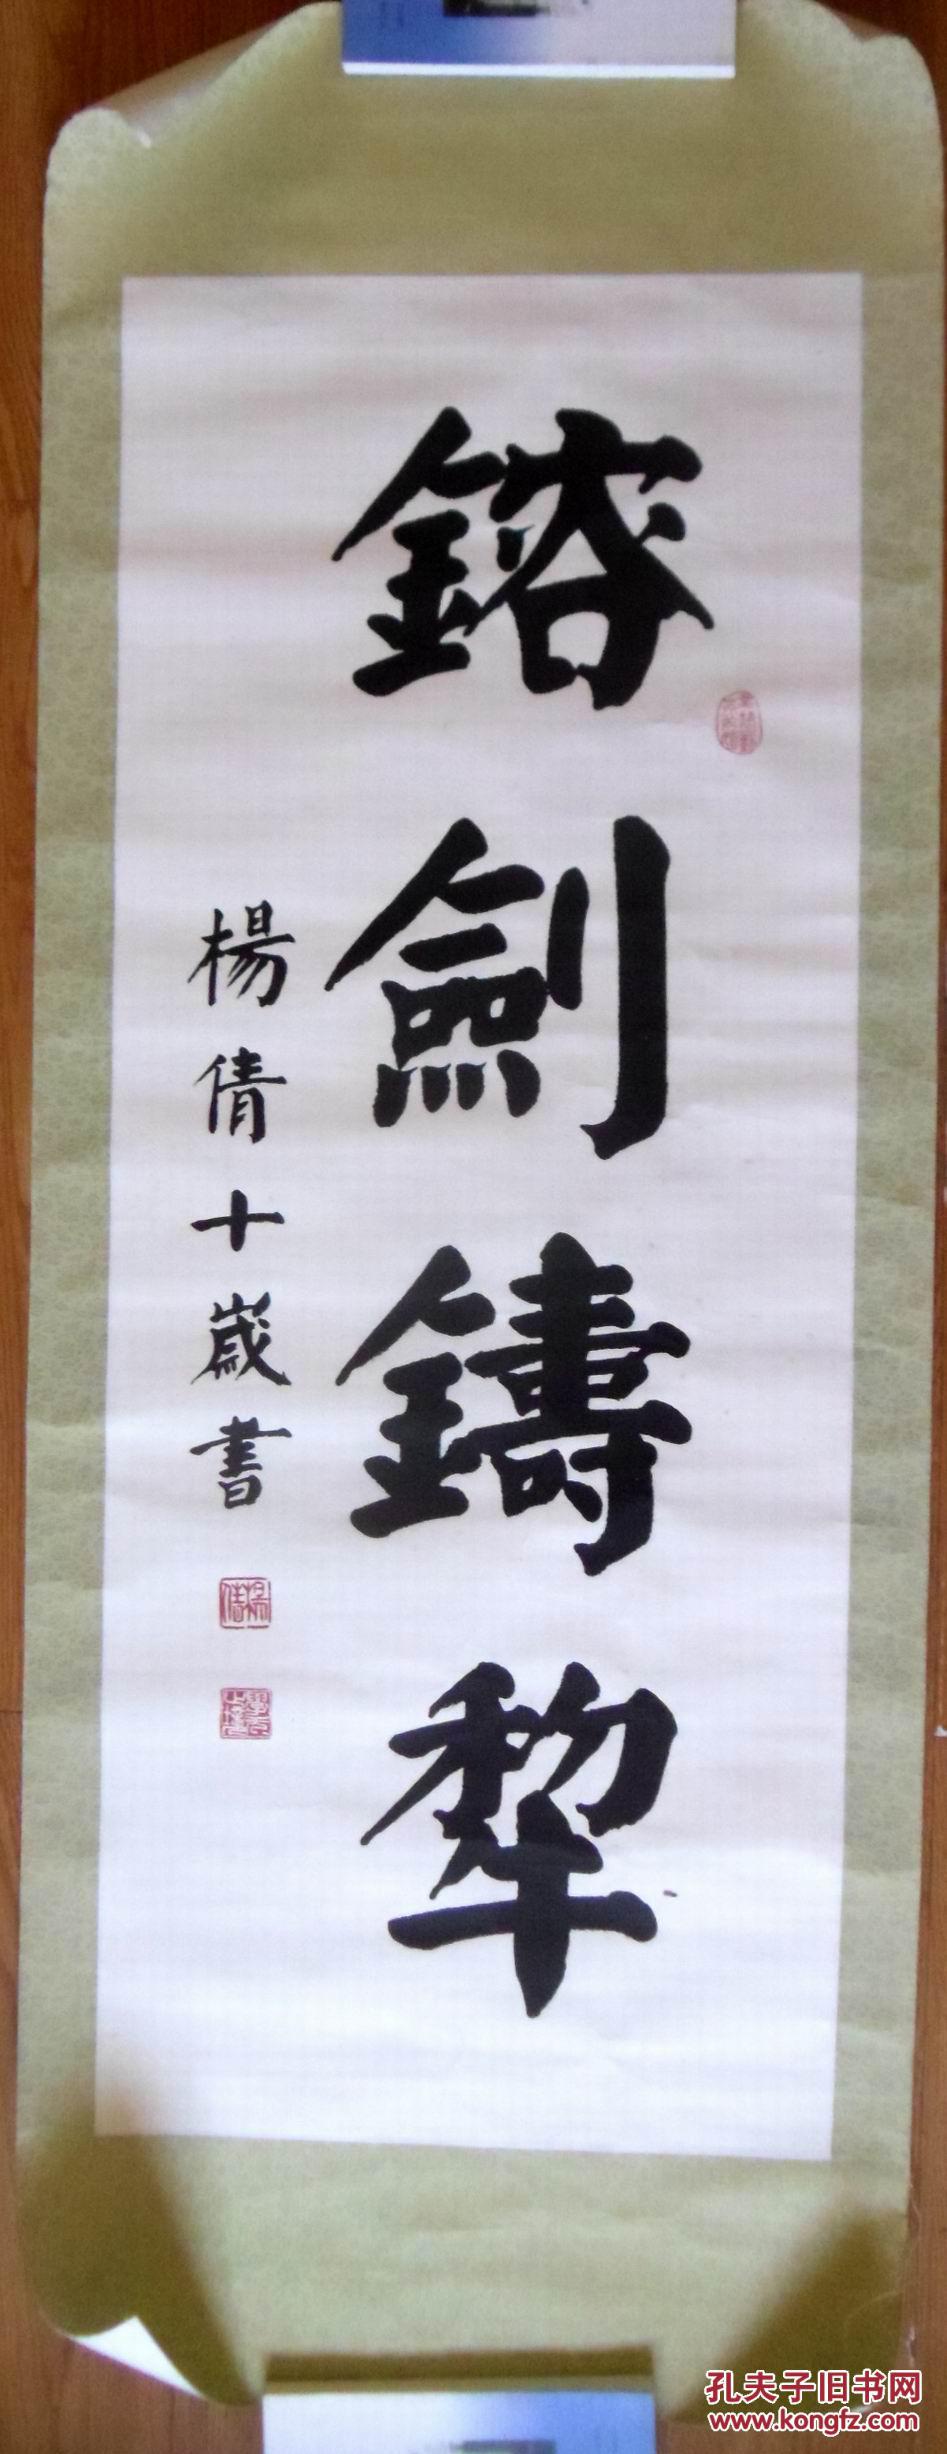 鎔劍鑄犂
楊倩十歲書
楊倩
孔夫子旧书网
www.kongfz.com